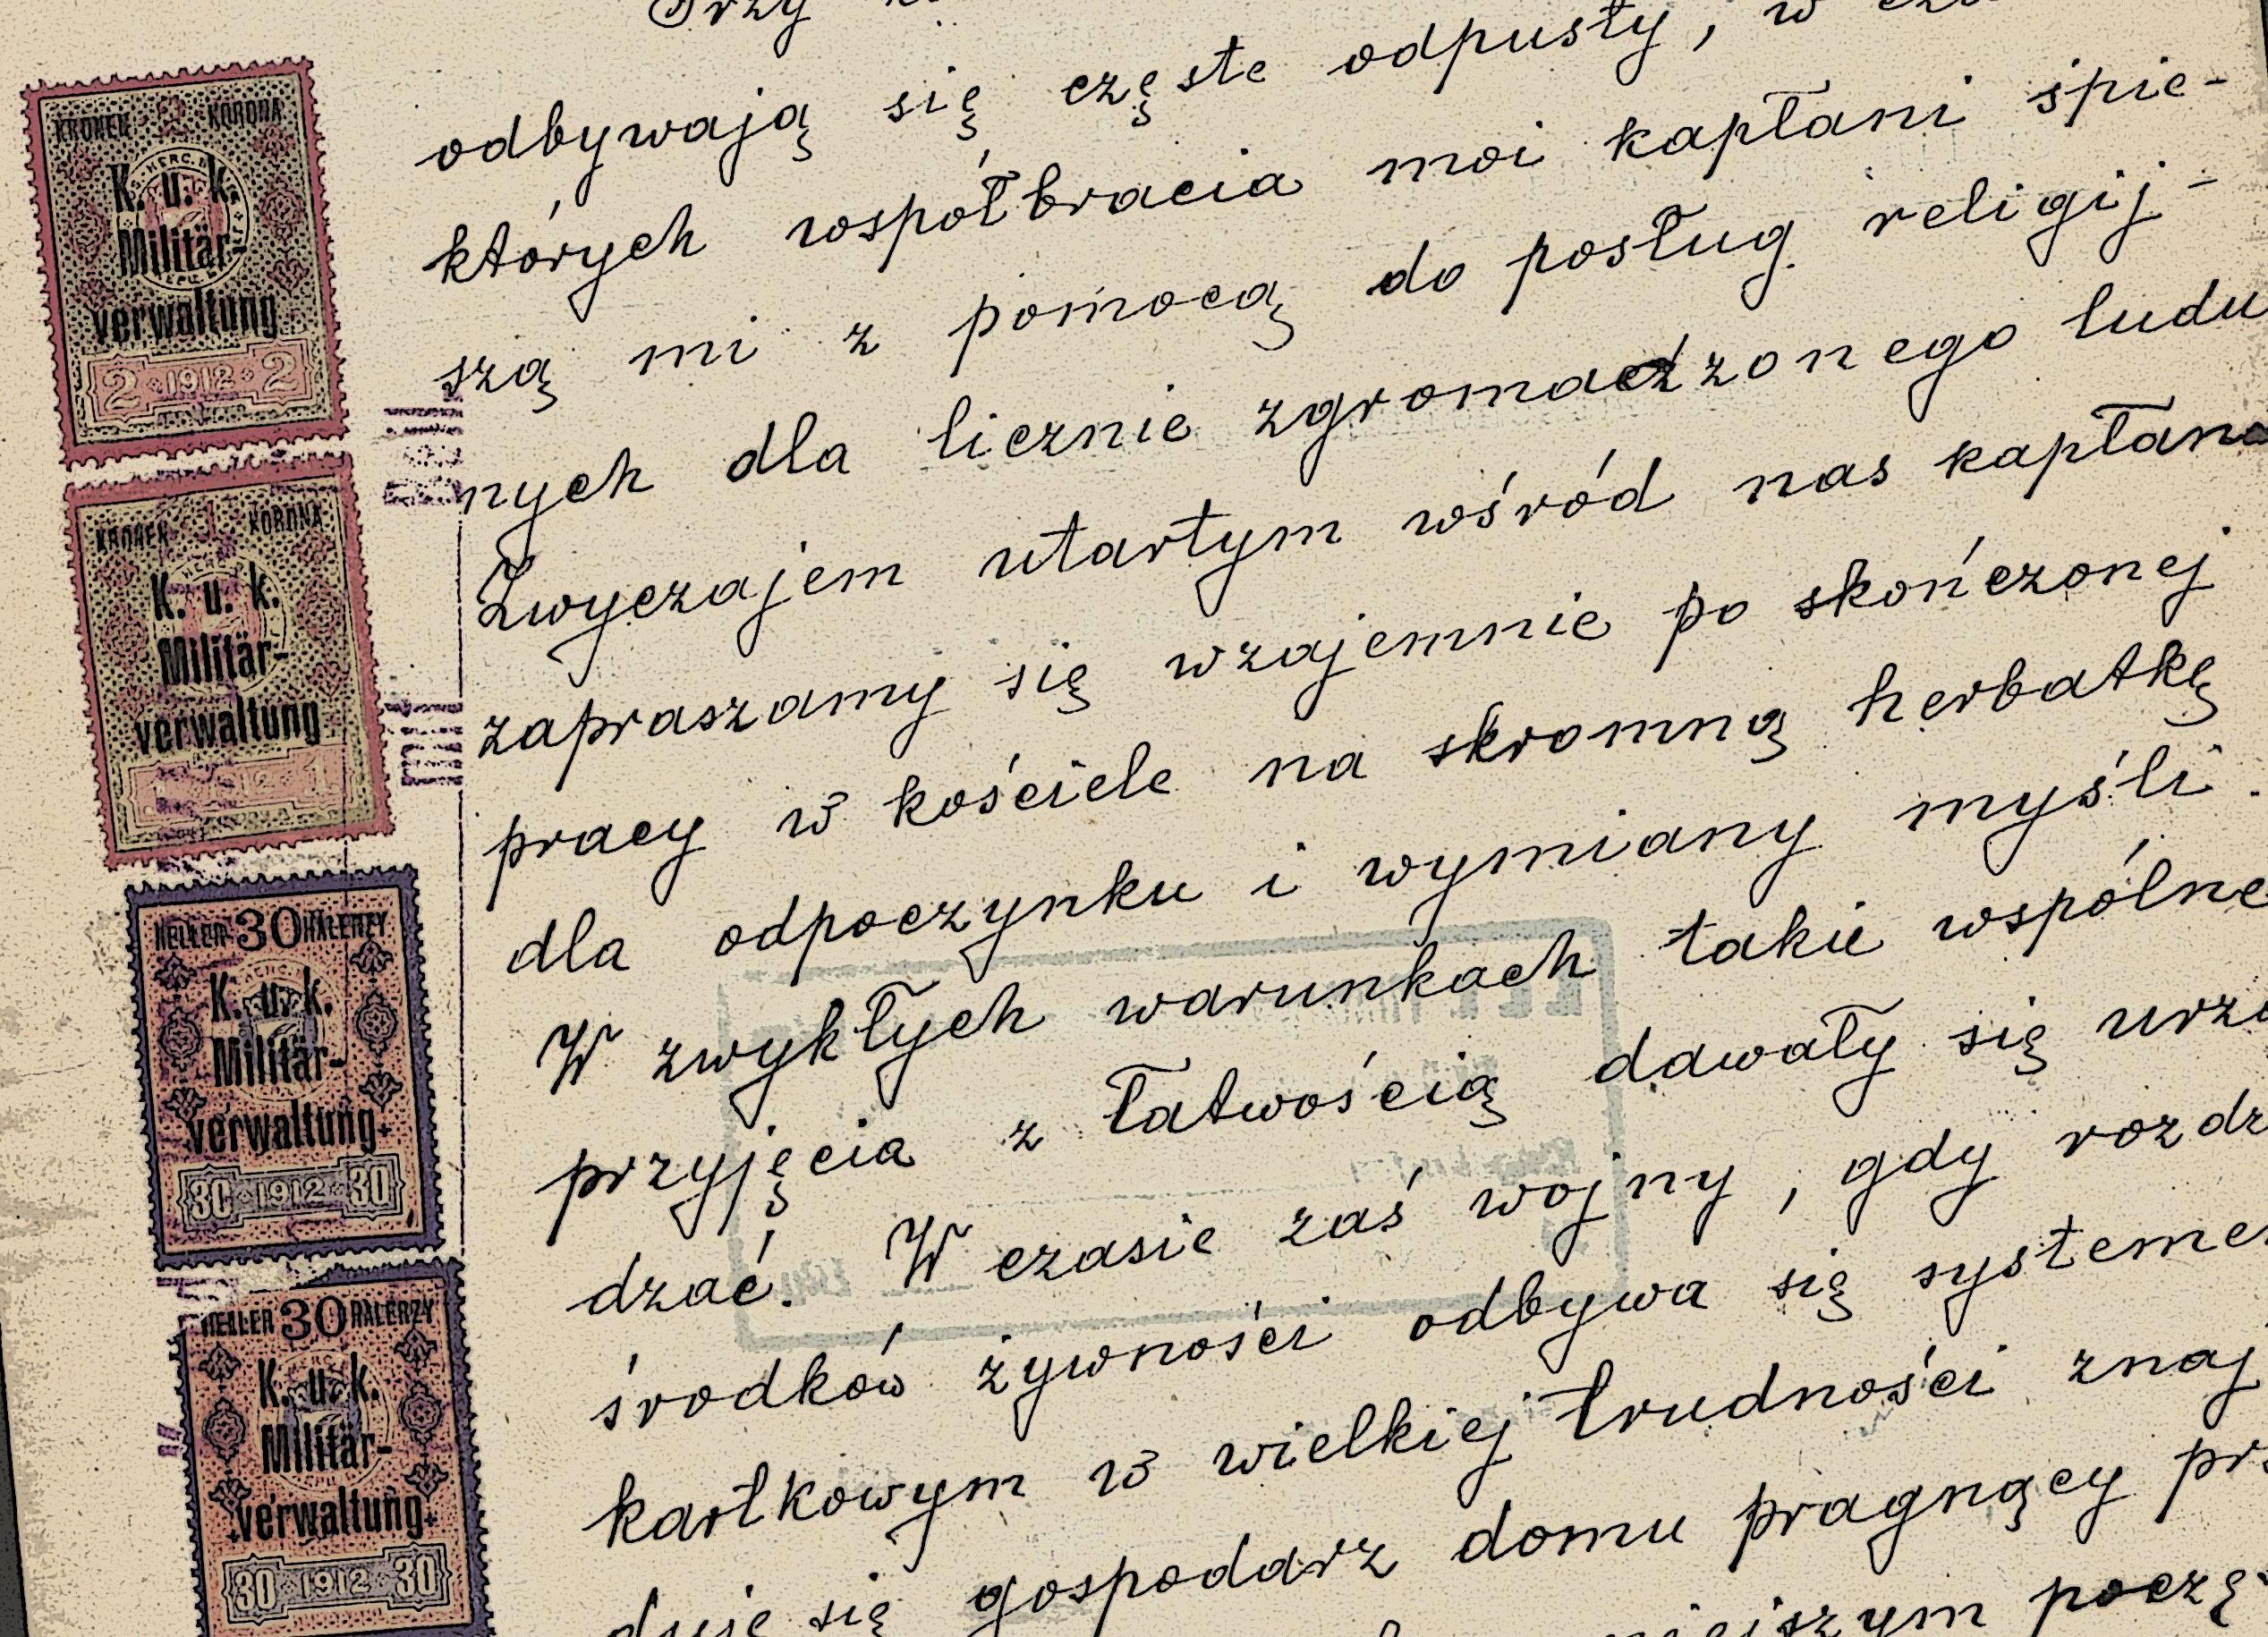 KRONEN 2 KORONA
K. u. k.
Militär-
verwaltung
2 · 1912 · 2
KRONEN 1 KORONA
K. u. k.
Militär-
verwaltung
1
HELLER 30 HALERZY
K. u. k.
Militär-
verwaltung
30 · 1912 · 30
HELLER 30 HALERZY
K. u. k.
Militär-
verwaltung
30 · 1912 · 30
Przy
odbywają się częste odpusty, w
których współbracia moi kapłani śpie-
szą mi z pomocą do posług religij-
nych dla licznie zgromadzonego ludu
Zwyczajem utartym wśród nas
zapraszamy się wzajemnie po skończonej
pracy w kościele na skromną herbatkę
dla odpoczynku i wymiany myśli.
W zwykłych warunkach takie wspólne
przyjęcia z łatwością dawały się
dzać. W czasie zaś wojny, gdy
środków żywności odbywa się
kartkowym w wielkiej trudności znaj
duje się gospodarz domu pragnący